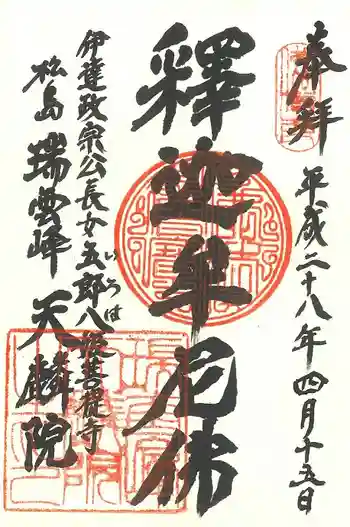 奉拜
平成二十八年四月十五日
釋迦牟尼佛
伊達政宗公長女五郎八姫菩提寺
いろは
松島 瑞雲峰 天麟院